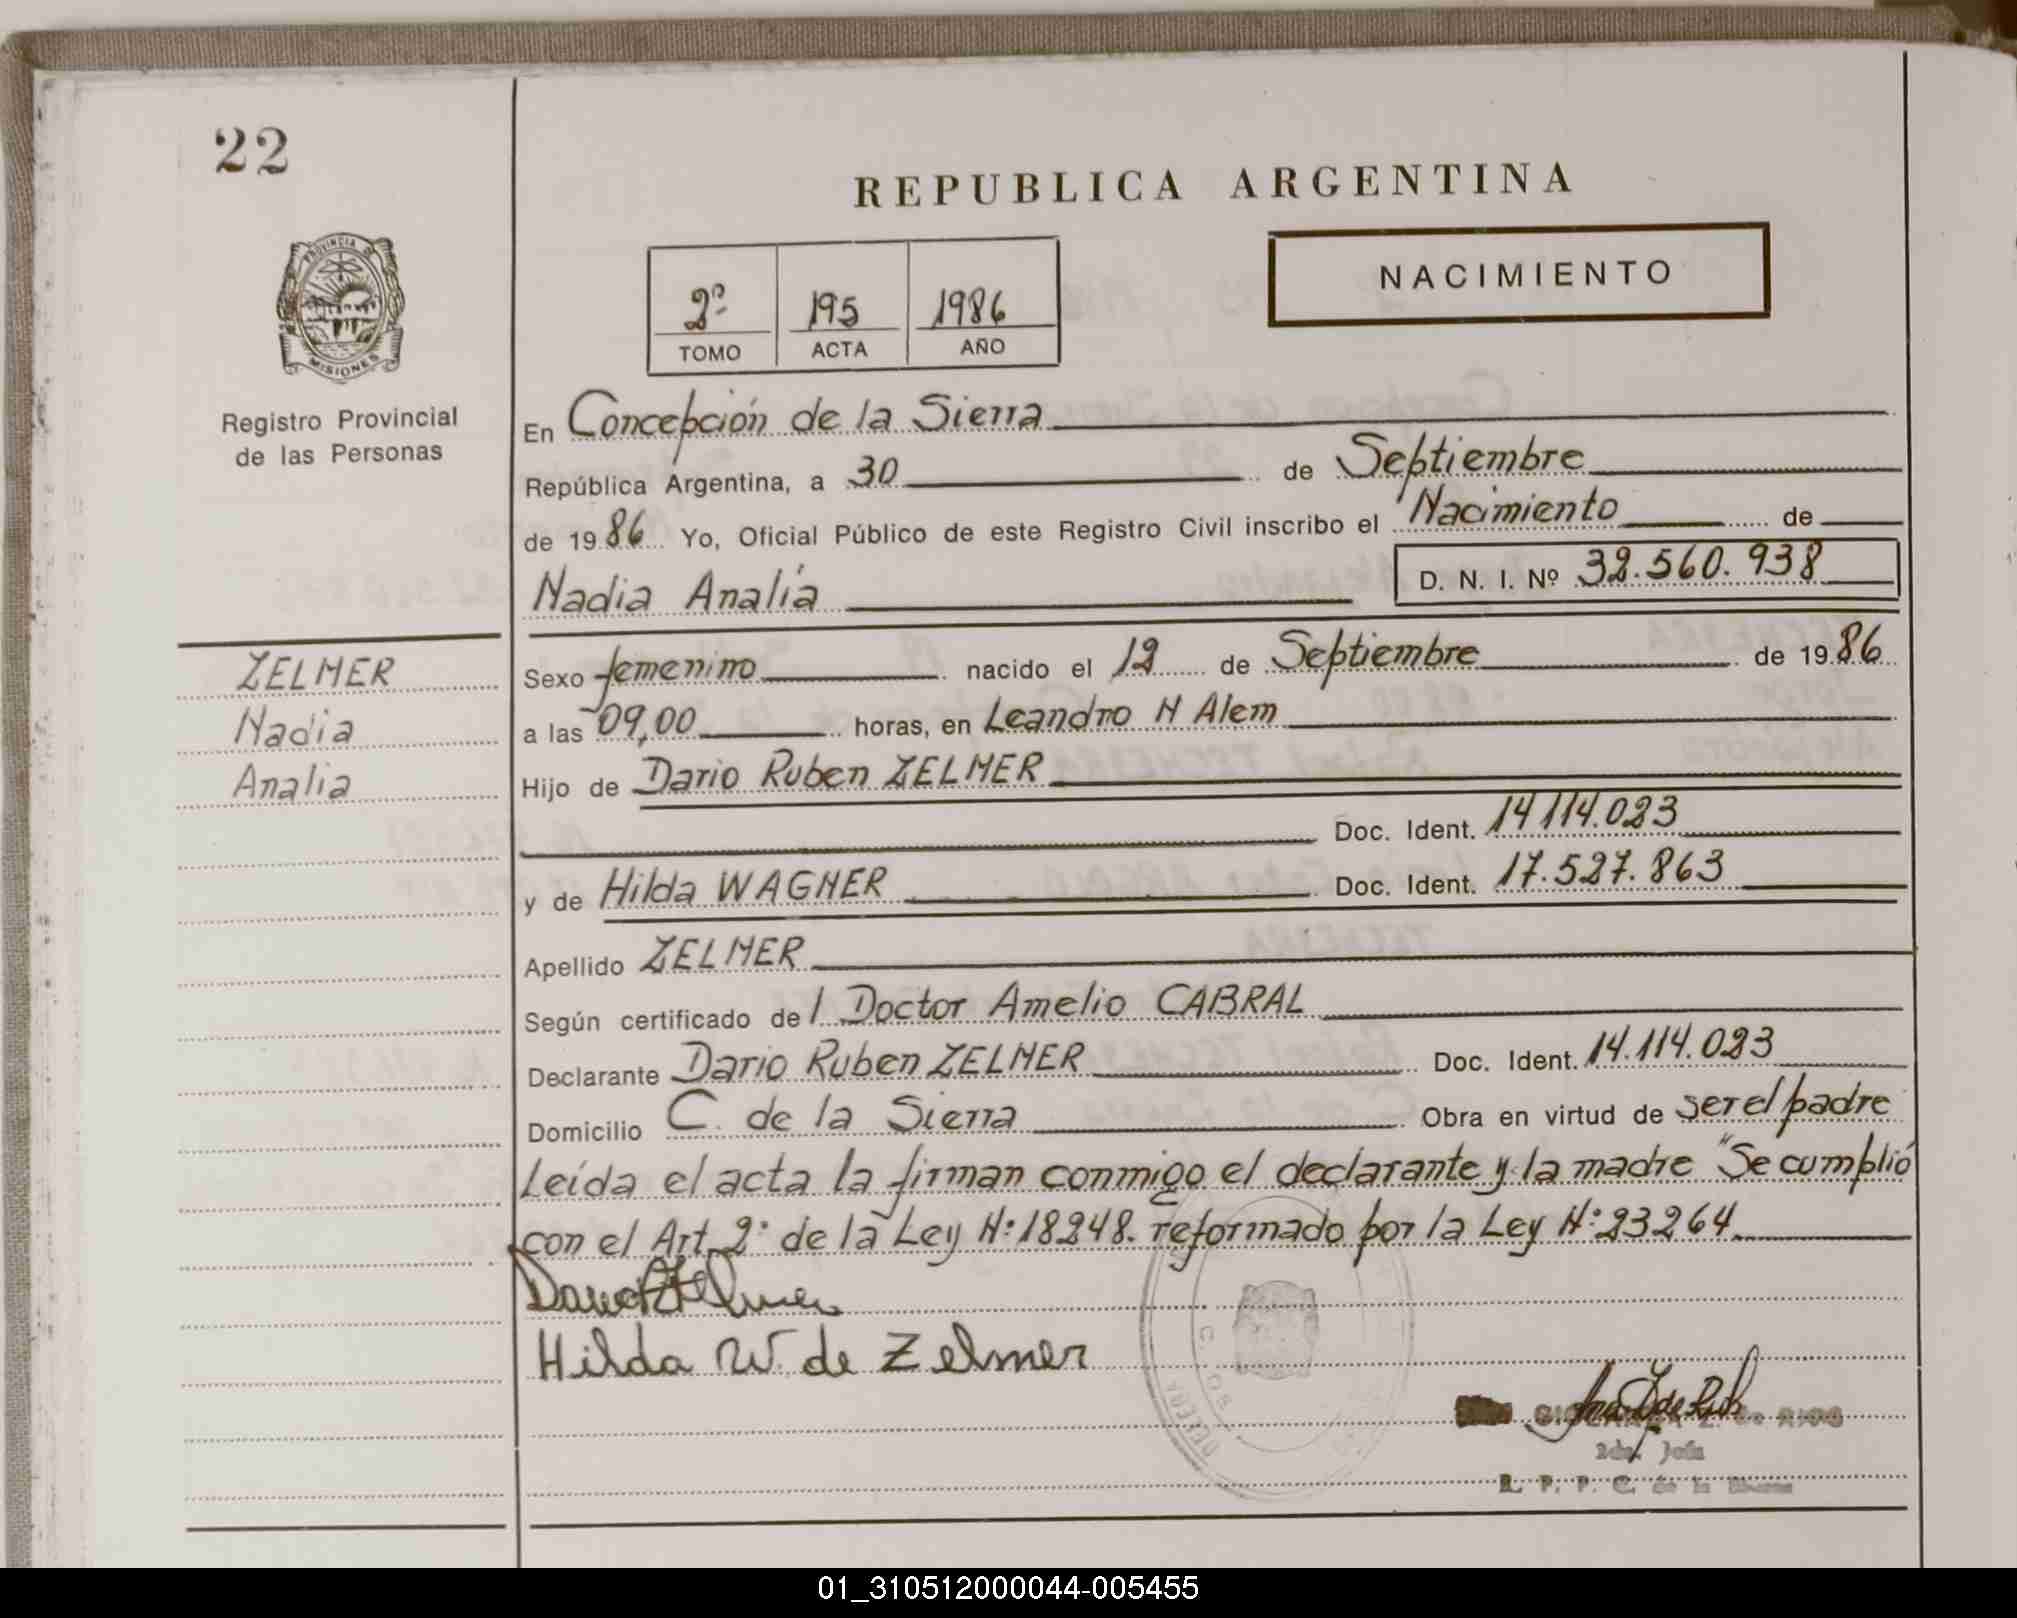 22
REPUBLICA ARGENTINA
NACIMIENTO
2º 195 1986
TOMO ACTA AÑO
PROVINCIA DE
MISIONES
Registro Provincial
de las Personas
En Concepción de la Sierra
República Argentina, a 30 de Septiembre
de 1986 Yo, Oficial Público de este Registro Civil inscribo el Nacimiento de
Nadia Analía D. N. I. Nº 32.560.938
ZELMER
Nadia
Analia
Sexo femenino nacido el 12 de Septiembre de 1986
a las 09,00 horas, en Leandro N Alem
Hijo de Dario Ruben ZELMER
Doc. Ident. 14114.023
y de Hilda WAGNER Doc. Ident. 17.527.863
Apellido ZELMER
Según certificado de l Doctor Amelio CABRAL
Declarante Dario Ruben ZELMER Doc. Ident. 14.114.023
Domicilio C. de la Sierra Obra en virtud de ser el padre
Leída el acta la firman conmigo el declarante y la madre "Se cumplió
con el Art. 2º de la Ley N: 18248. reformado por la Ley N: 23264
Hilda W. de Zelmer
de RIOS
R. P. P. C. de la Sierra
01_310512000044-005455